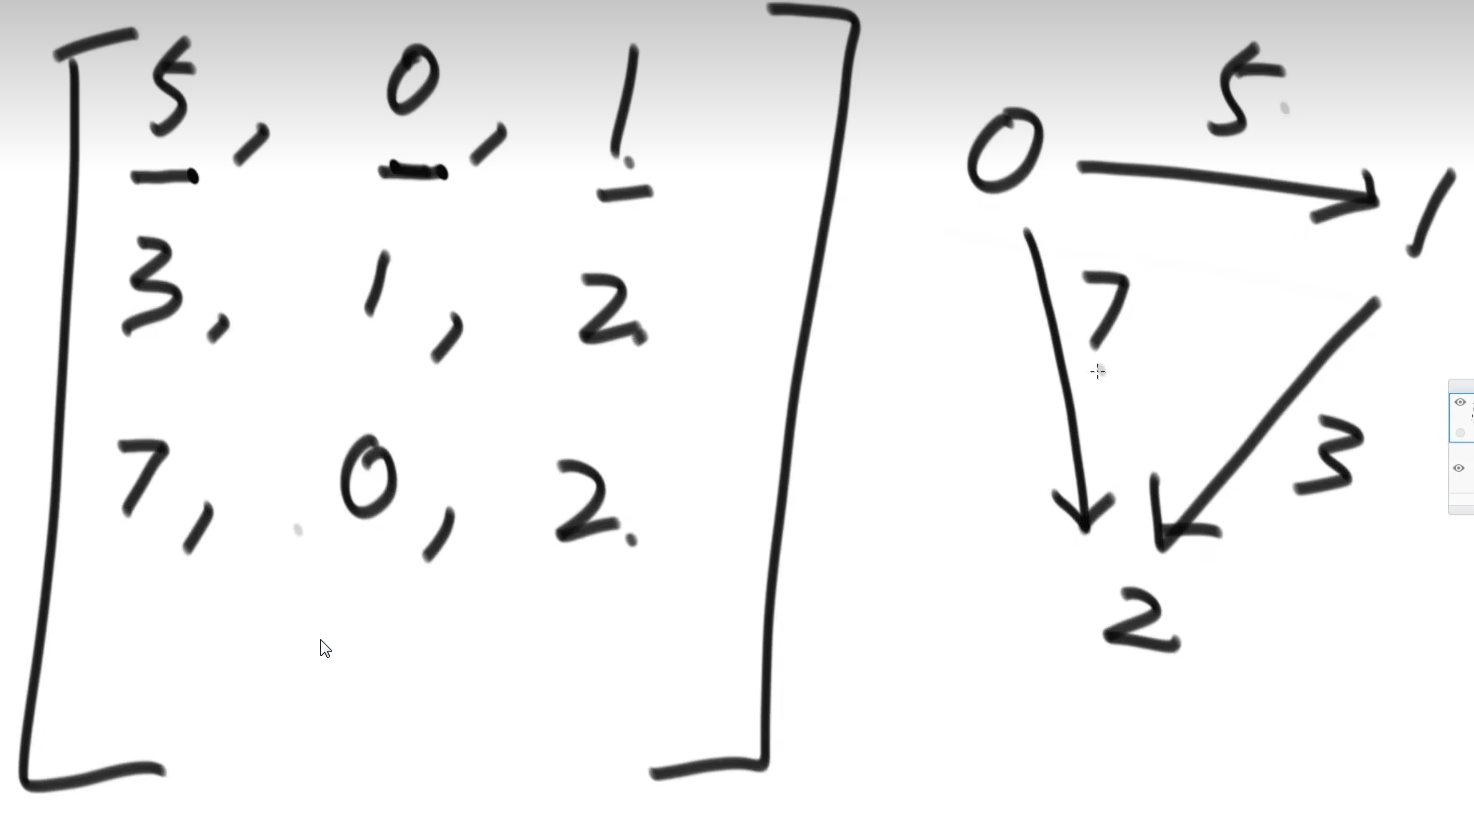 5, 0, 1
3, 1, 2
7, 0, 2
0 5 1
7
3
2